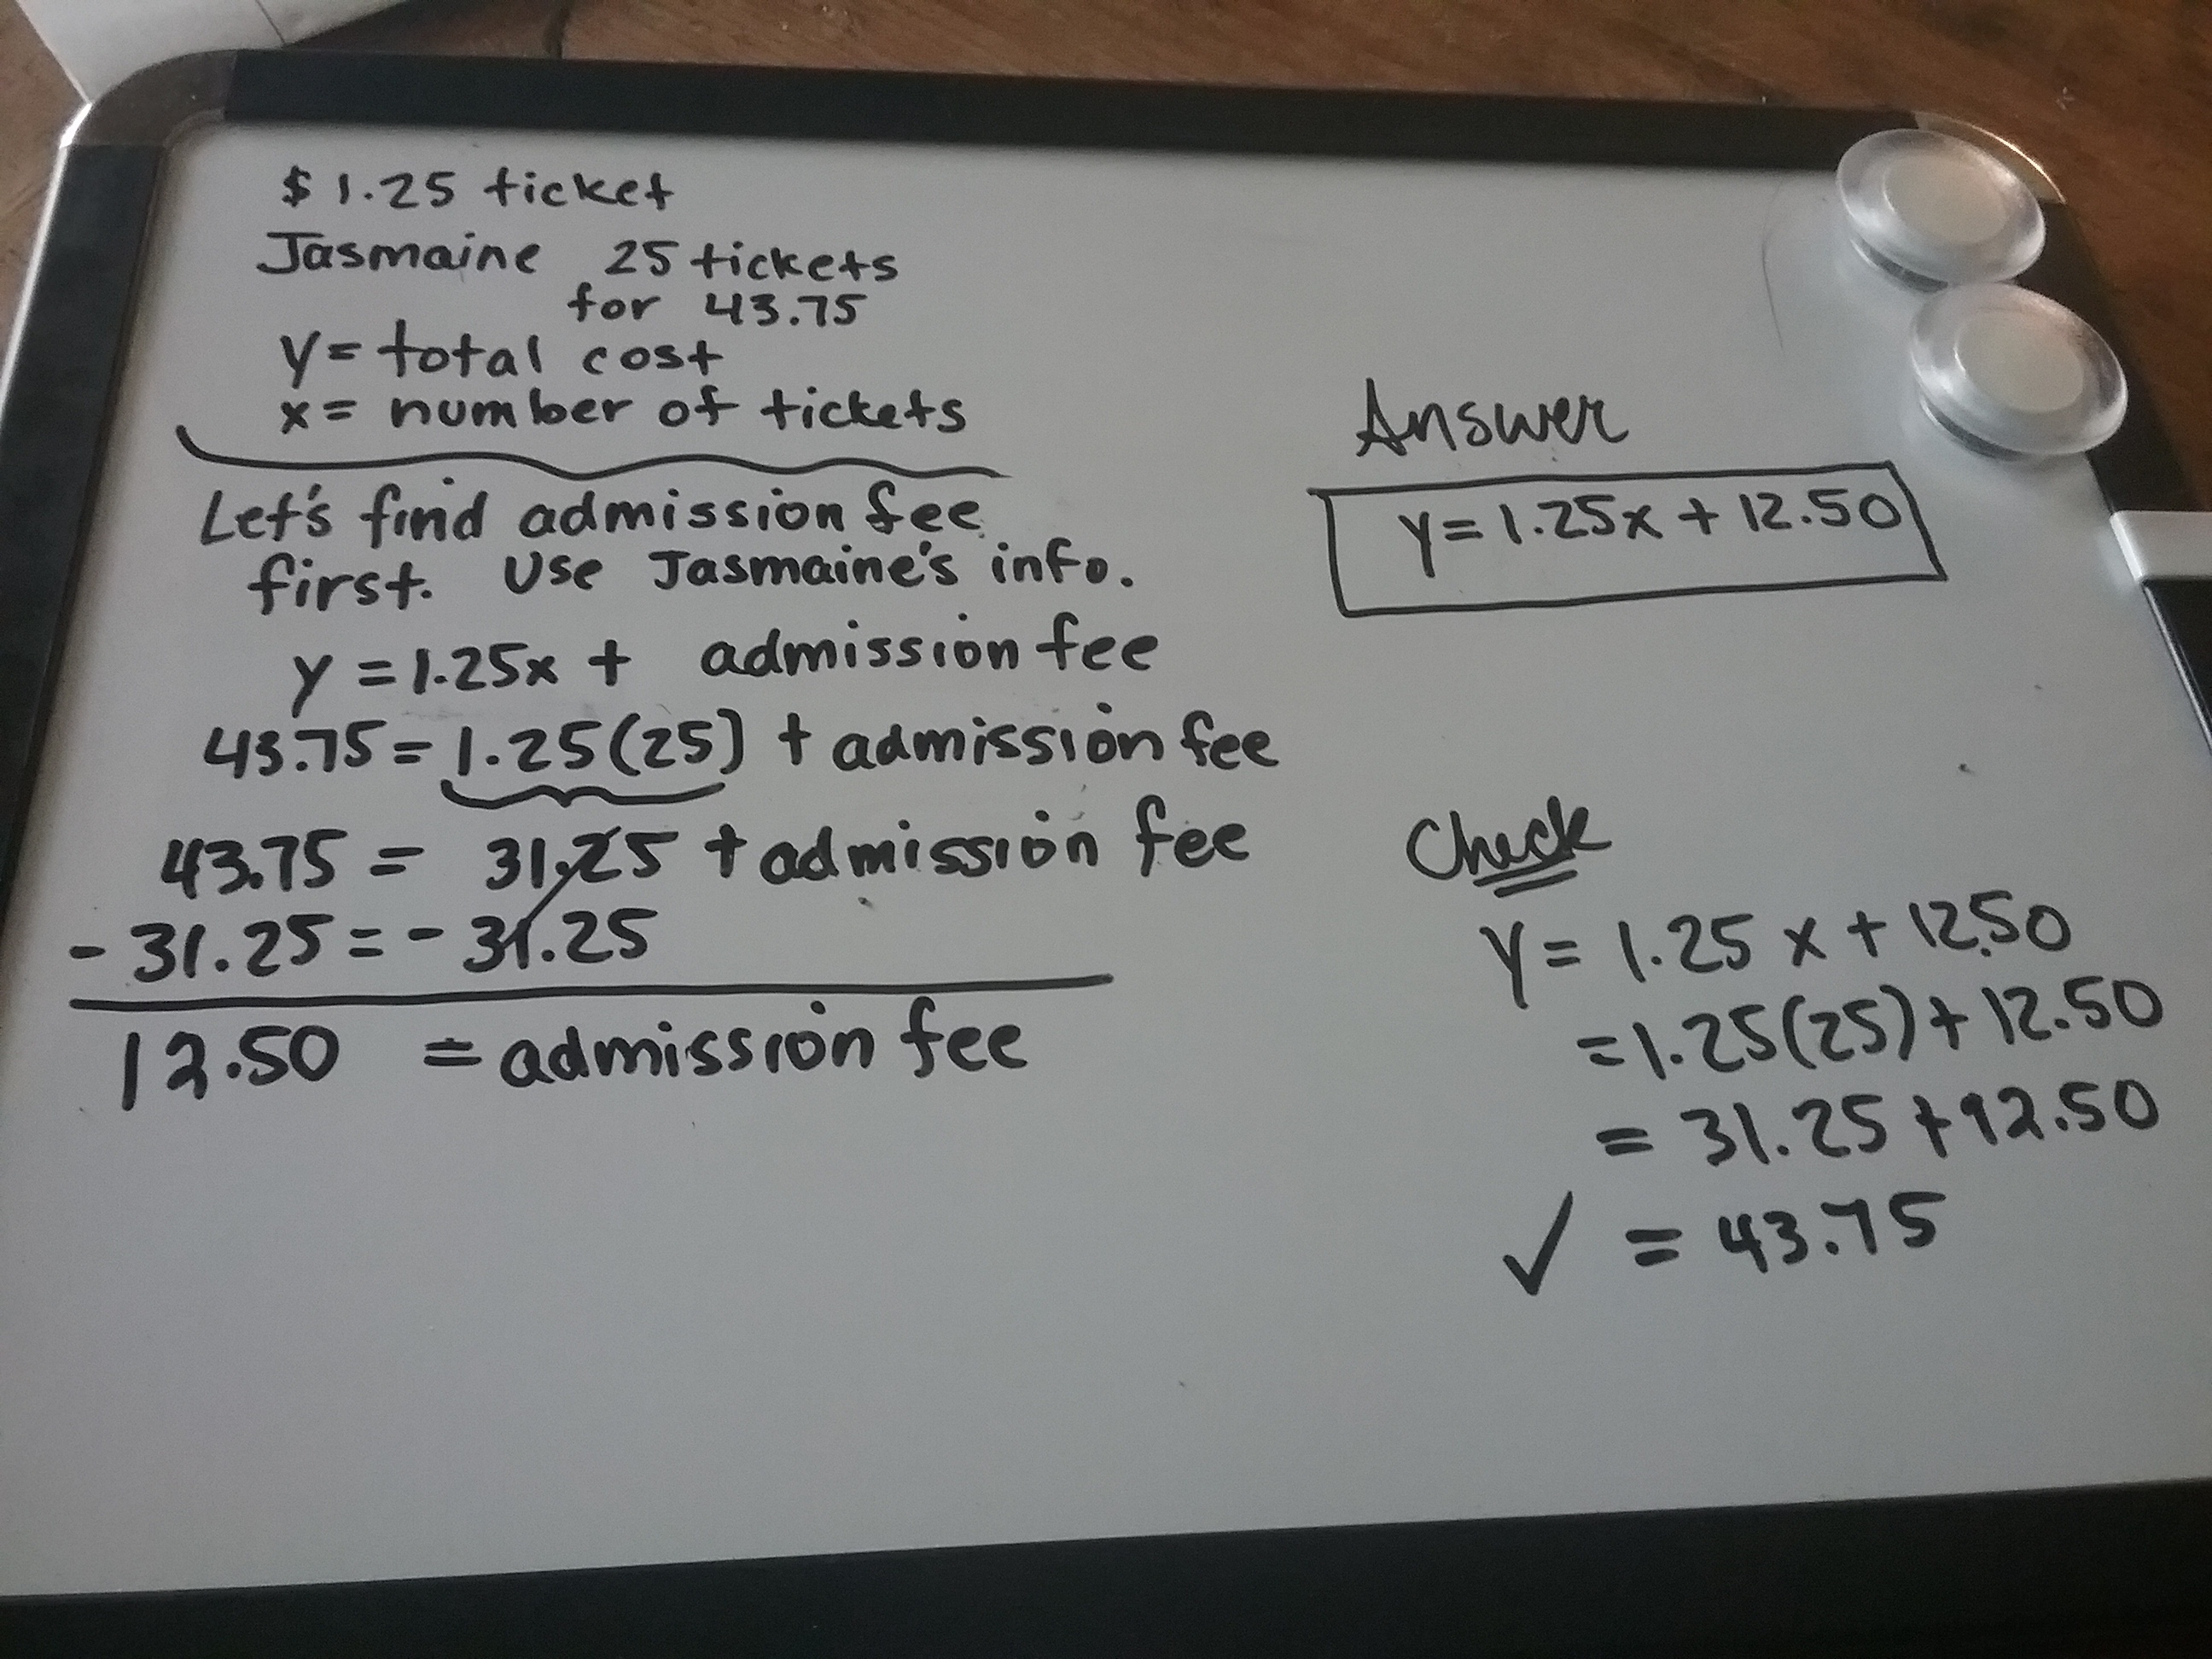 $1.25 ticket
Jasmaine 25 tickets
for 43.75
y = total cost
x = number of tickets
Let's find admission fee
first. Use Jasmaine's info.
y = 1.25x + admission fee
43.75 = 1.25(25) + admission fee
43.75 = 31.25 + admission fee
- 31.25 = - 31.25
12.50 = admission fee
Answer
y = 1.25x + 12.50
Check
y = 1.25x + 12.50
= 1.25(25) + 12.50
= 31.25 + 12.50
✓ = 43.75